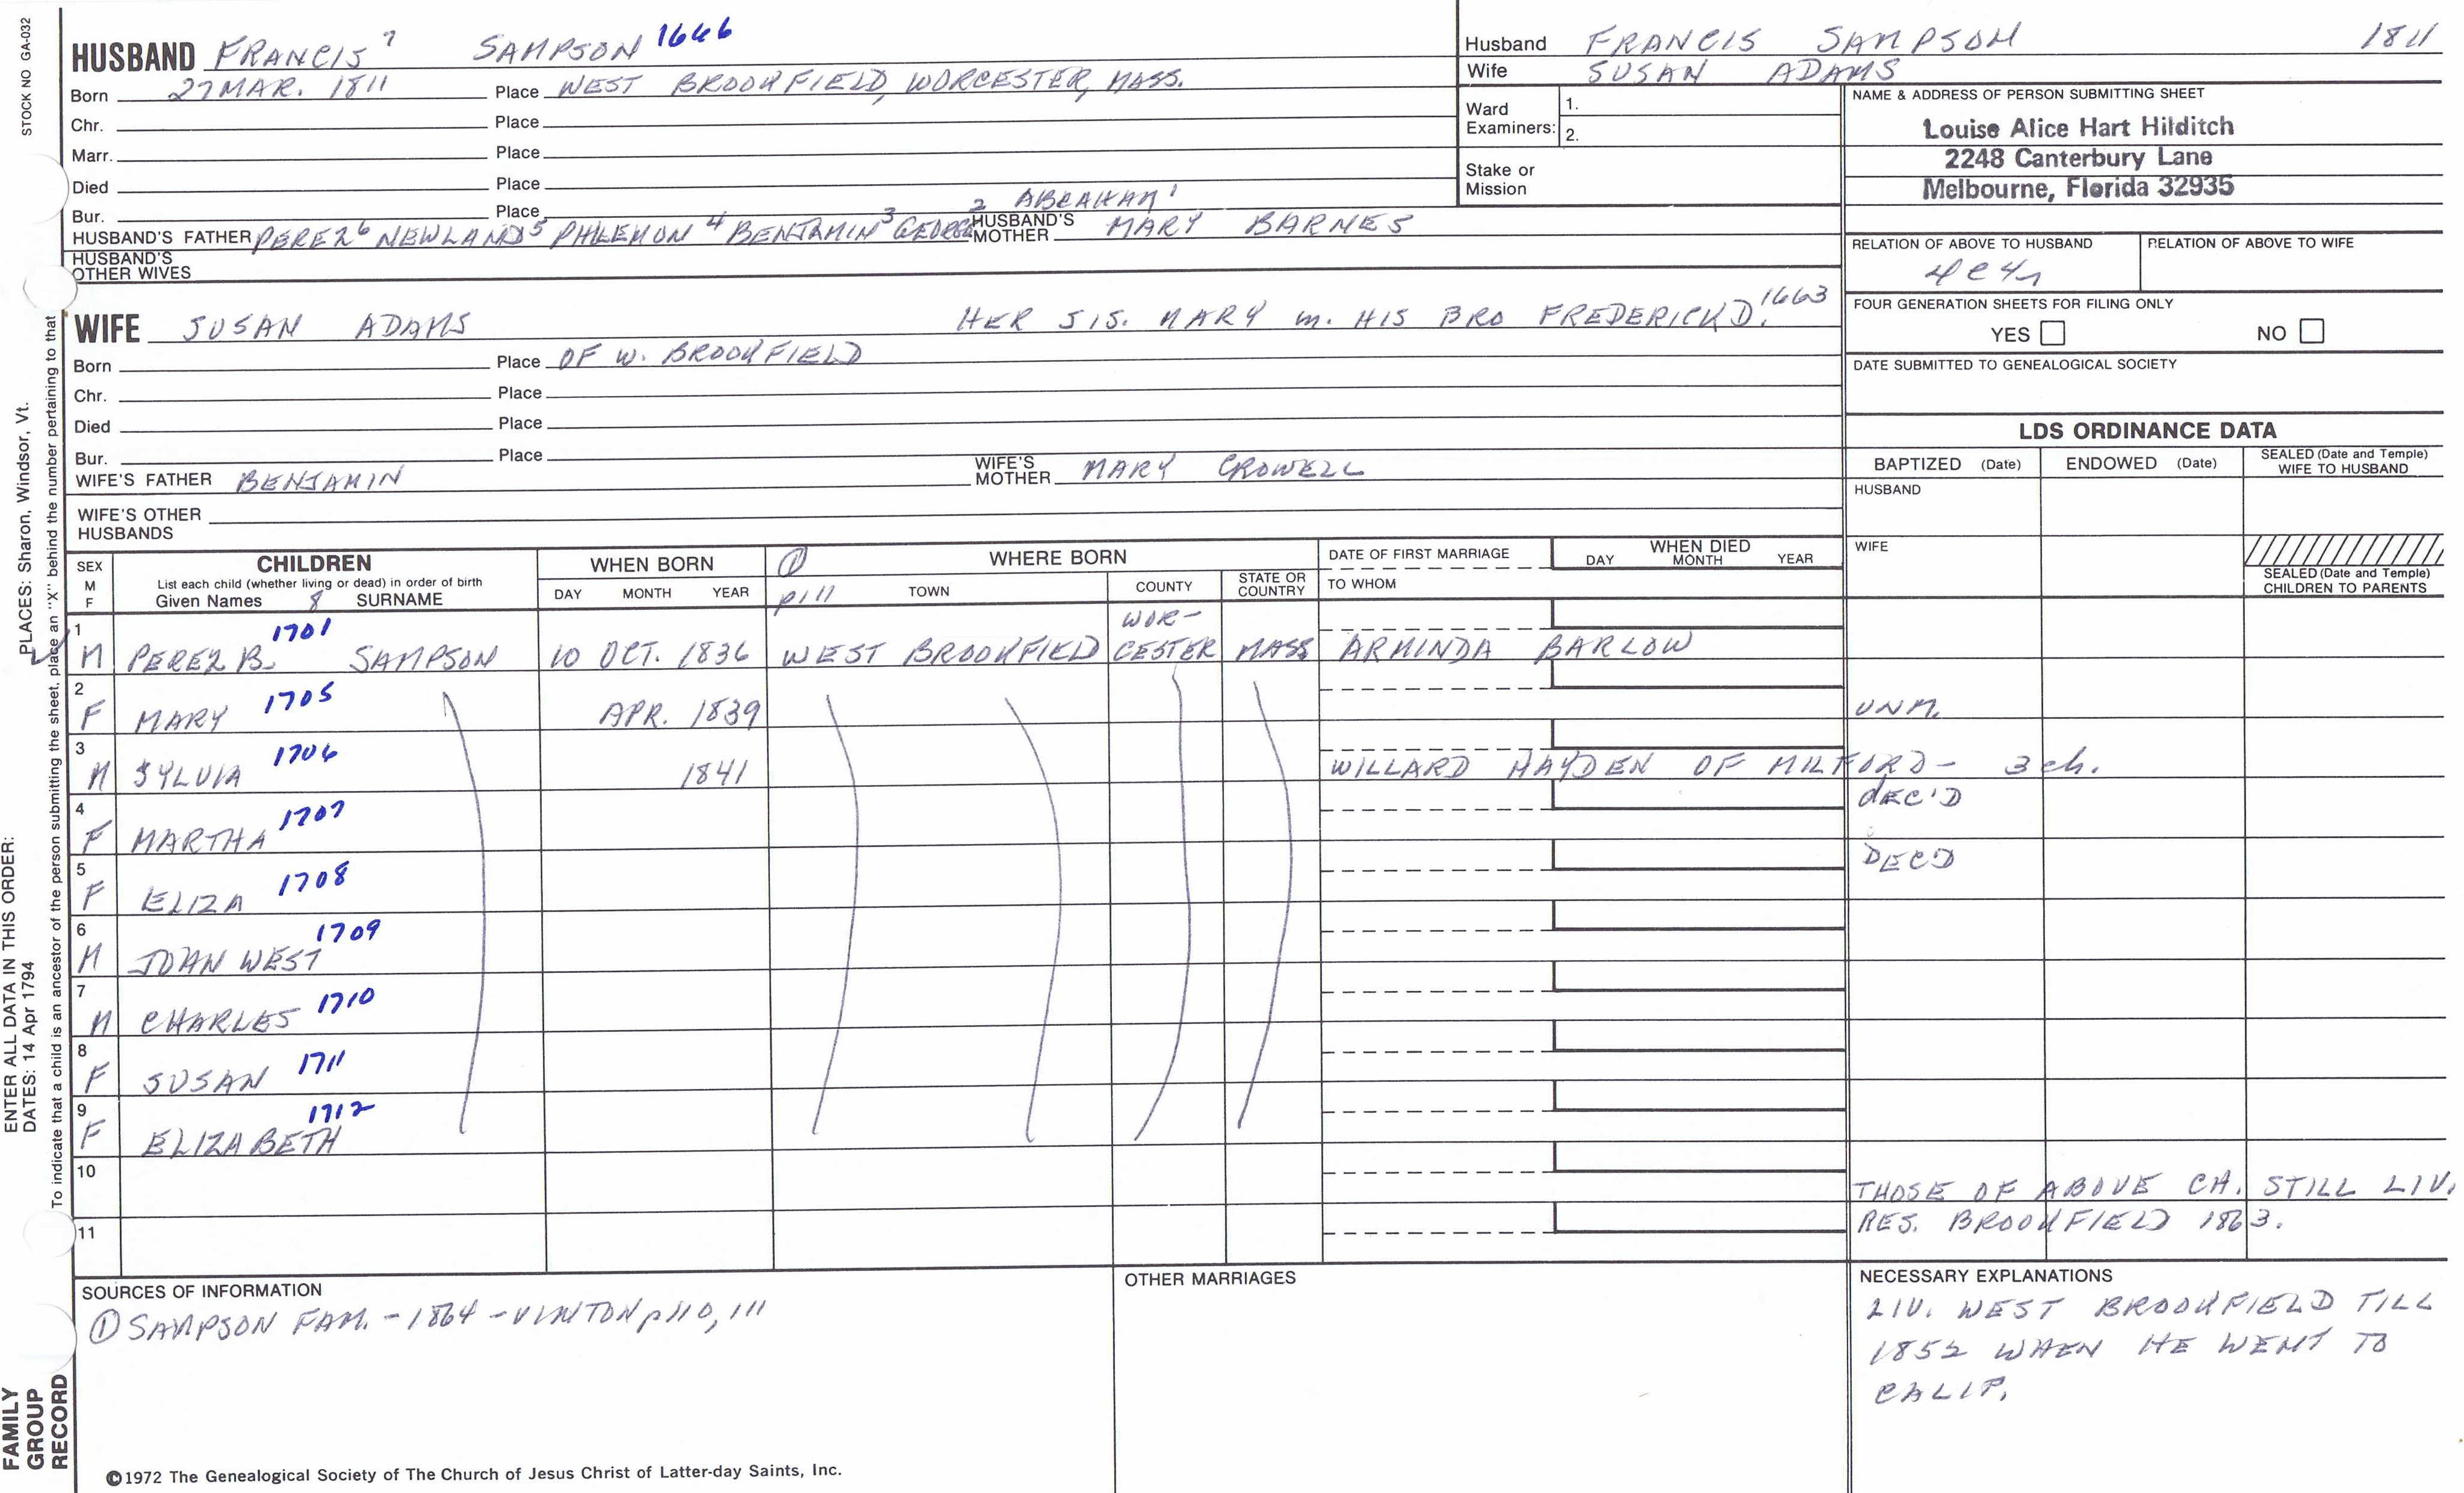 STOCK NO GA-032
HUSBAND FRANCIS 7 SAMPSON 1646
Born 27 MAR. 1811 Place WEST BROOKFIELD, WORCESTER, MASS.
Chr. Place
Marr. Place
Died Place
Bur. Place
2 ABRAHAM 1
HUSBAND'S FATHER PEREZ 6 NEWLAND 5 PHILEMON 4 BENJAMIN 3 GEORGE HUSBAND'S MOTHER MARY BARNES
HUSBAND'S OTHER WIVES
WIFE SUSAN ADAMS HER SIS. MARY m. HIS BRO FREDERICK D. 1663
Born Place OF W. BROOKFIELD
Chr. Place
Died Place
Bur. Place
WIFE'S FATHER BENJAMIN WIFE'S MOTHER MARY CROWELL
WIFE'S OTHER HUSBANDS
Husband FRANCIS SAMPSON 1811
Wife SUSAN ADAMS
Ward Examiners: 1.
2.
Stake or Mission
NAME & ADDRESS OF PERSON SUBMITTING SHEET
Louise Alice Hart Hilditch
2248 Canterbury Lane
Melbourne, Florida 32935
RELATION OF ABOVE TO HUSBAND RELATION OF ABOVE TO WIFE
4c4r
FOUR GENERATION SHEETS FOR FILING ONLY
YES NO
DATE SUBMITTED TO GENEALOGICAL SOCIETY
LDS ORDINANCE DATA
BAPTIZED (Date) ENDOWED (Date) SEALED (Date and Temple) WIFE TO HUSBAND
HUSBAND
WIFE
SEALED (Date and Temple) CHILDREN TO PARENTS
SEX M F CHILDREN WHEN BORN ① WHERE BORN DATE OF FIRST MARRIAGE WHEN DIED
List each child (whether living or dead) in order of birth
Given Names 8 SURNAME DAY MONTH YEAR p111 TOWN COUNTY STATE OR COUNTRY TO WHOM DAY MONTH YEAR
1 M PEREZ B. 1701 SAMPSON 10 OCT. 1836 WEST BROOKFIELD WOR-CESTER MASS ARMINDA BARLOW
2 F MARY 1705 APR. 1839 UNM.
3 M SYLVIA 1706 1841 WILLARD HAYDEN OF MILFORD- 3 ch.
4 F MARTHA 1707 dEC'D
5 F ELIZA 1708 DEC'D
6 M JOAN WEST 1709
7 M CHARLES 1710
8 F SUSAN 1711
9 F ELIZABETH 1712
10 THOSE OF ABOVE CH. STILL LIV.
11 RES. BROOKFIELD 1863.
SOURCES OF INFORMATION
① SAMPSON FAM. - 1864 - VINTON p110, 111
OTHER MARRIAGES
NECESSARY EXPLANATIONS
LIV. WEST BROOKFIELD TILL
1852 WHEN HE WENT TO
CALIF.
©1972 The Genealogical Society of The Church of Jesus Christ of Latter-day Saints, Inc.
ENTER ALL DATA IN THIS ORDER:
DATES: 14 Apr 1794 PLACES: Sharon, Windsor, Vt.
To indicate that a child is an ancestor of the person submitting the sheet, place an "X" behind the number pertaining to that
FAMILY
GROUP
RECORD